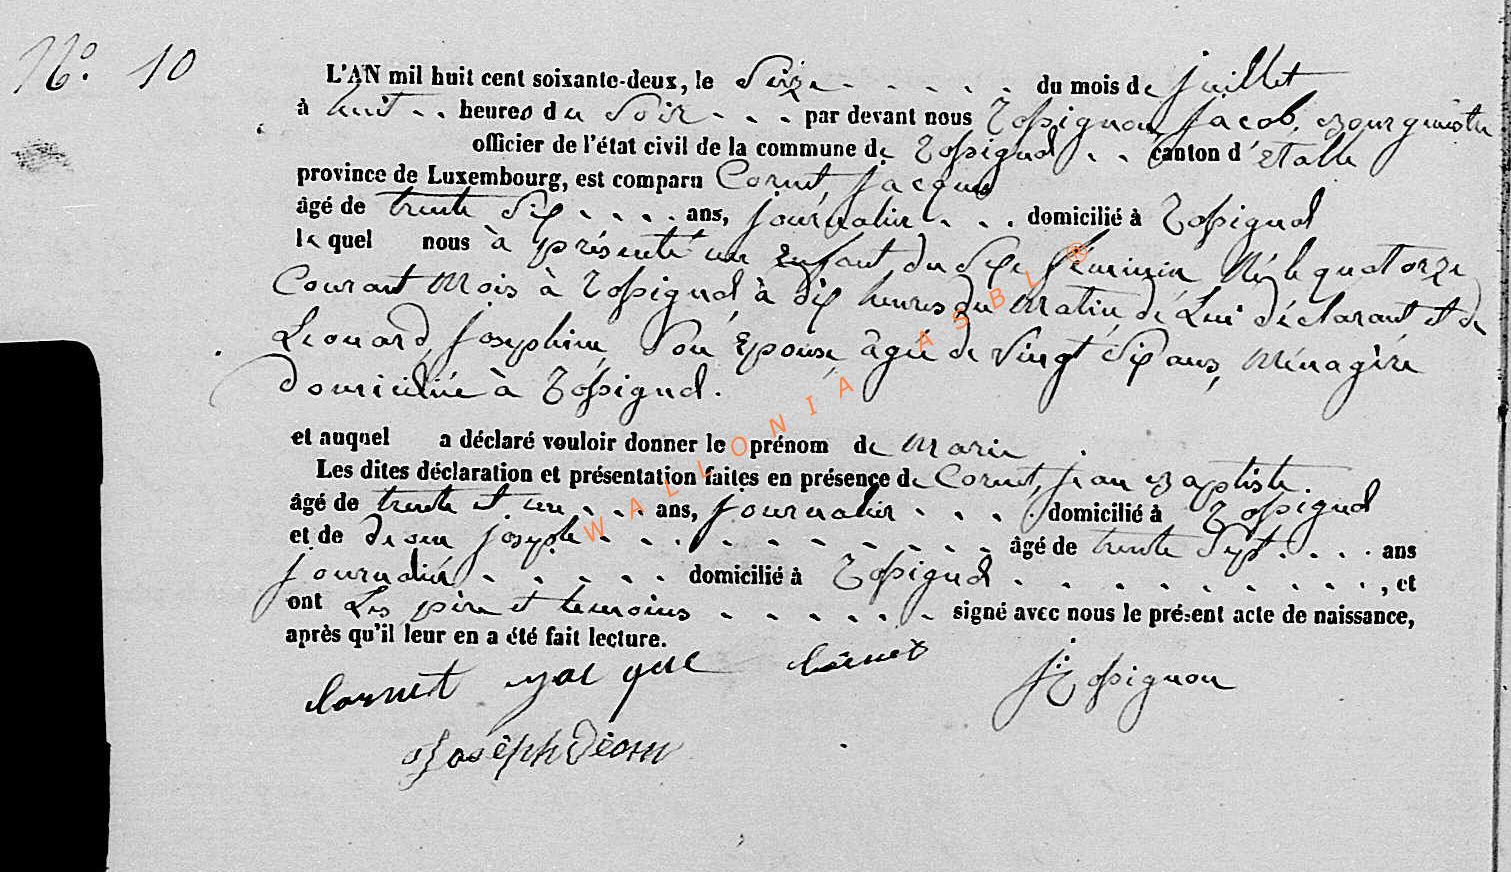 No. 10
L'AN mil huit cent soixante-deux, le Seize du mois de juillet
à huit heures du Soir par devant nous Rossignon, Jacob, Bourgumistre
officier de l'état civil de la commune de Rossignol canton d'Etalle
province de Luxembourg, est comparu Cornet, Jacques
âgé de trente Six ans, journalier domicilié à Rossignol
lequel nous à présenté un Enfant du Sexe féminin Né le quatorze
Courant Mois à Rossignol à dix heures du Matin de Lui déclarant et de
Léonard, Joséphine, Son Epouse âgée de Vingt Six ans, Ménagère
domiciliée à Rossignol.
et auquel a déclaré vouloir donner le prénom de Marie
Les dites déclaration et présentation faites en présence de Cornet, Jean Baptiste.
âgé de trente et un ans, journalier domicilié à Rossignol
et de Joseph âgé de trente Sept ans
journalier domicilié à Rossignol, et
ont Les père et temoins signé avec nous le présent acte de naissance,
après qu'il leur en a été fait lecture.
Cornet jacque Cornet J: Rossignon
Joseph Déom
WALLONIA ASBL ®